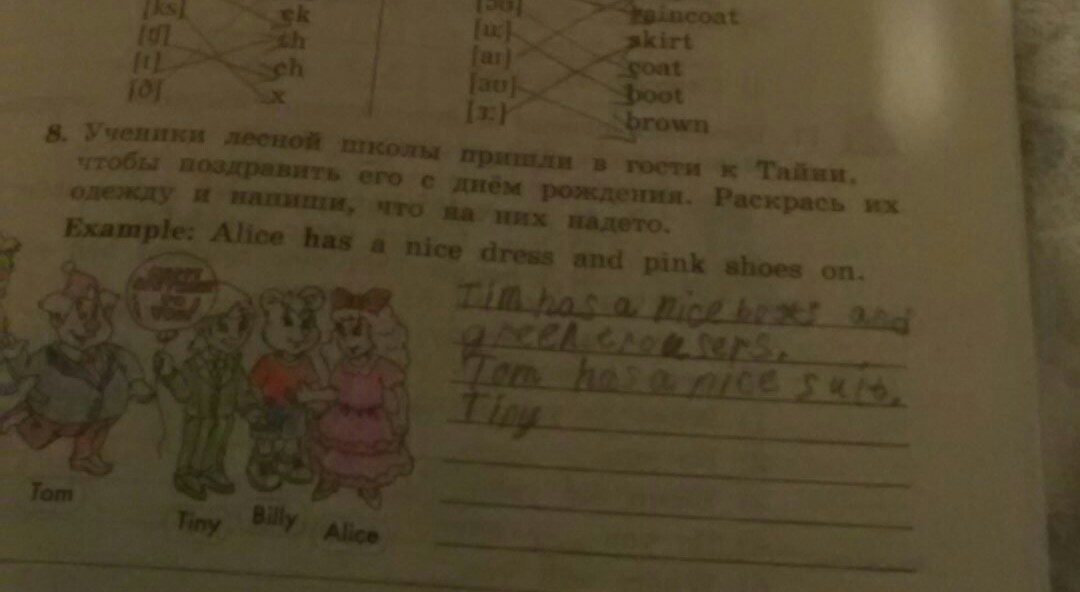 [ks] ck
[tʃ] th
[ɪ] ch
[ð] x
[əʊ] raincoat
[u:] skirt
[aɪ] coat
[aʊ] boot
[ɜ:] brown
8. Ученики лесной школы пришли в гости к Тайни,
чтобы поздравить его с днём рождения. Раскрась их
одежду и напиши, что на них надето.
Example: Alice has a nice dress and pink shoes on.
Tim has a nice boots and
green trousers.
Tom has a nice suit.
Tiny
HAPPY
BIRTHDAY
TO
YOU!
Tom
Tiny
Billy
Alice